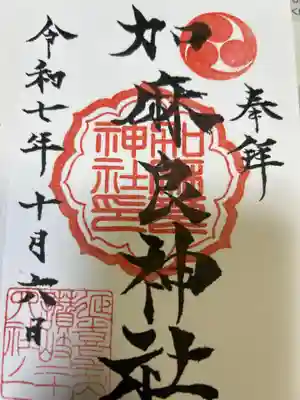 奉拝
加麻良神社
加麻良
神社印
令和七年十月六日